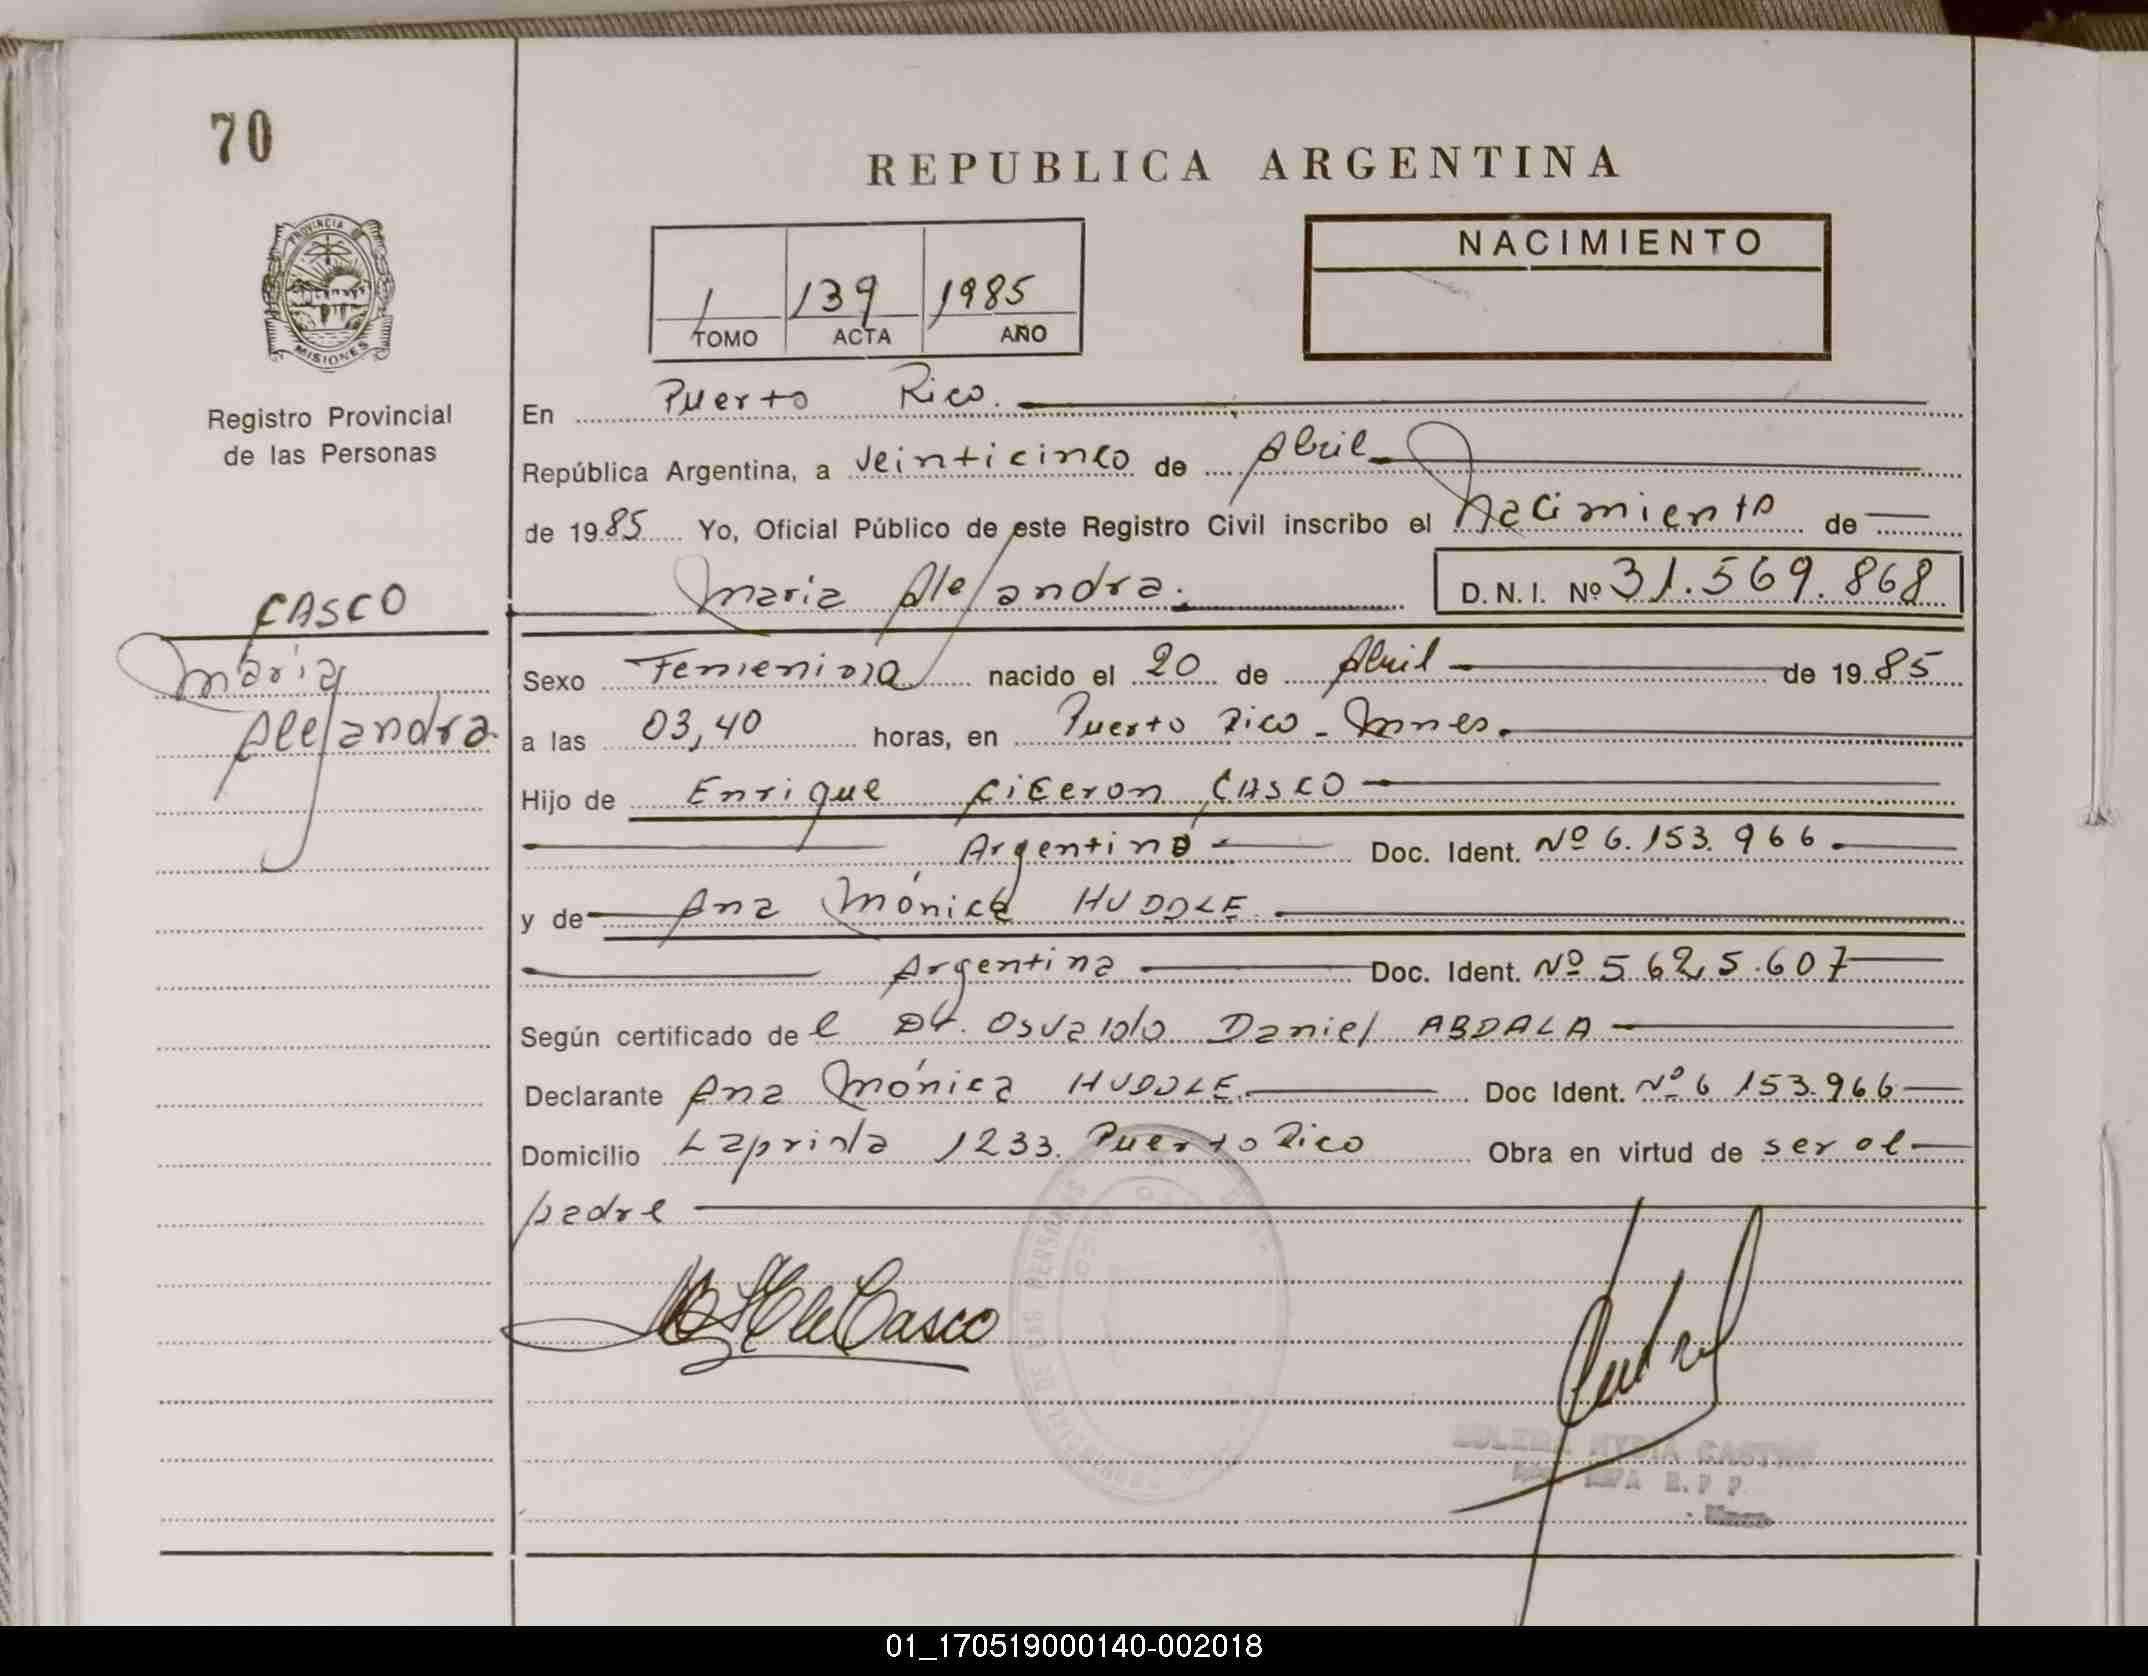 70
REPUBLICA ARGENTINA
PROVINCIA DE
MISIONES
Registro Provincial
de las Personas
CASCO
María
Alejandra
1 139 1985
TOMO ACTA AÑO
NACIMIENTO
En Puerto Rico.
República Argentina, a veinticinco de Abril
de 1985 Yo, Oficial Público de este Registro Civil inscribo el Nacimiento de
Maria Alejandra. D.N.I. Nº 31.569.868
Sexo Femenina nacido el 20 de Abril de 1985
a las 03,40 horas, en Puerto Rico - Mnes.
Hijo de Enrique Ciceron CASCO
Argentino Doc. Ident. Nº 6.153.966
y de Ana Mónica HUDDLE
Argentina Doc. Ident. Nº 5.625.607
Según certificado de l Dr. Osvaldo Daniel ABDALA
Declarante Ana Mónica HUDDLE Doc Ident. Nº 6 153.966
Domicilio Laprida 1233. Puerto Rico Obra en virtud de ser el
padre
de Casco
DE LAS PERSONAS
CASTRO
R.P.P
01_170519000140-002018